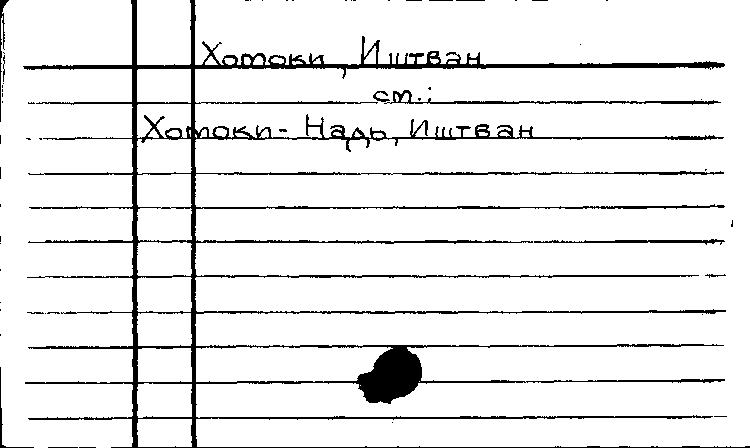 Хотоки, Иштван
см.:
Хотоки- Надь, Иштван